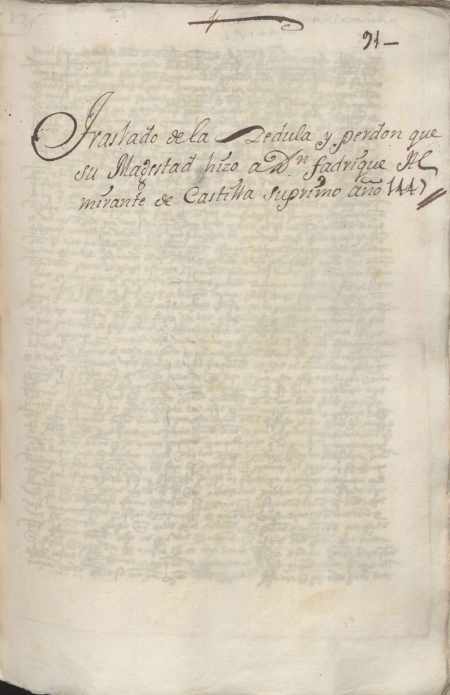 91-
Traslado de la Zedula y perdon que
su Magestad hizo a Dn. fadrique Al
mirante de Castilla su primo año 1447